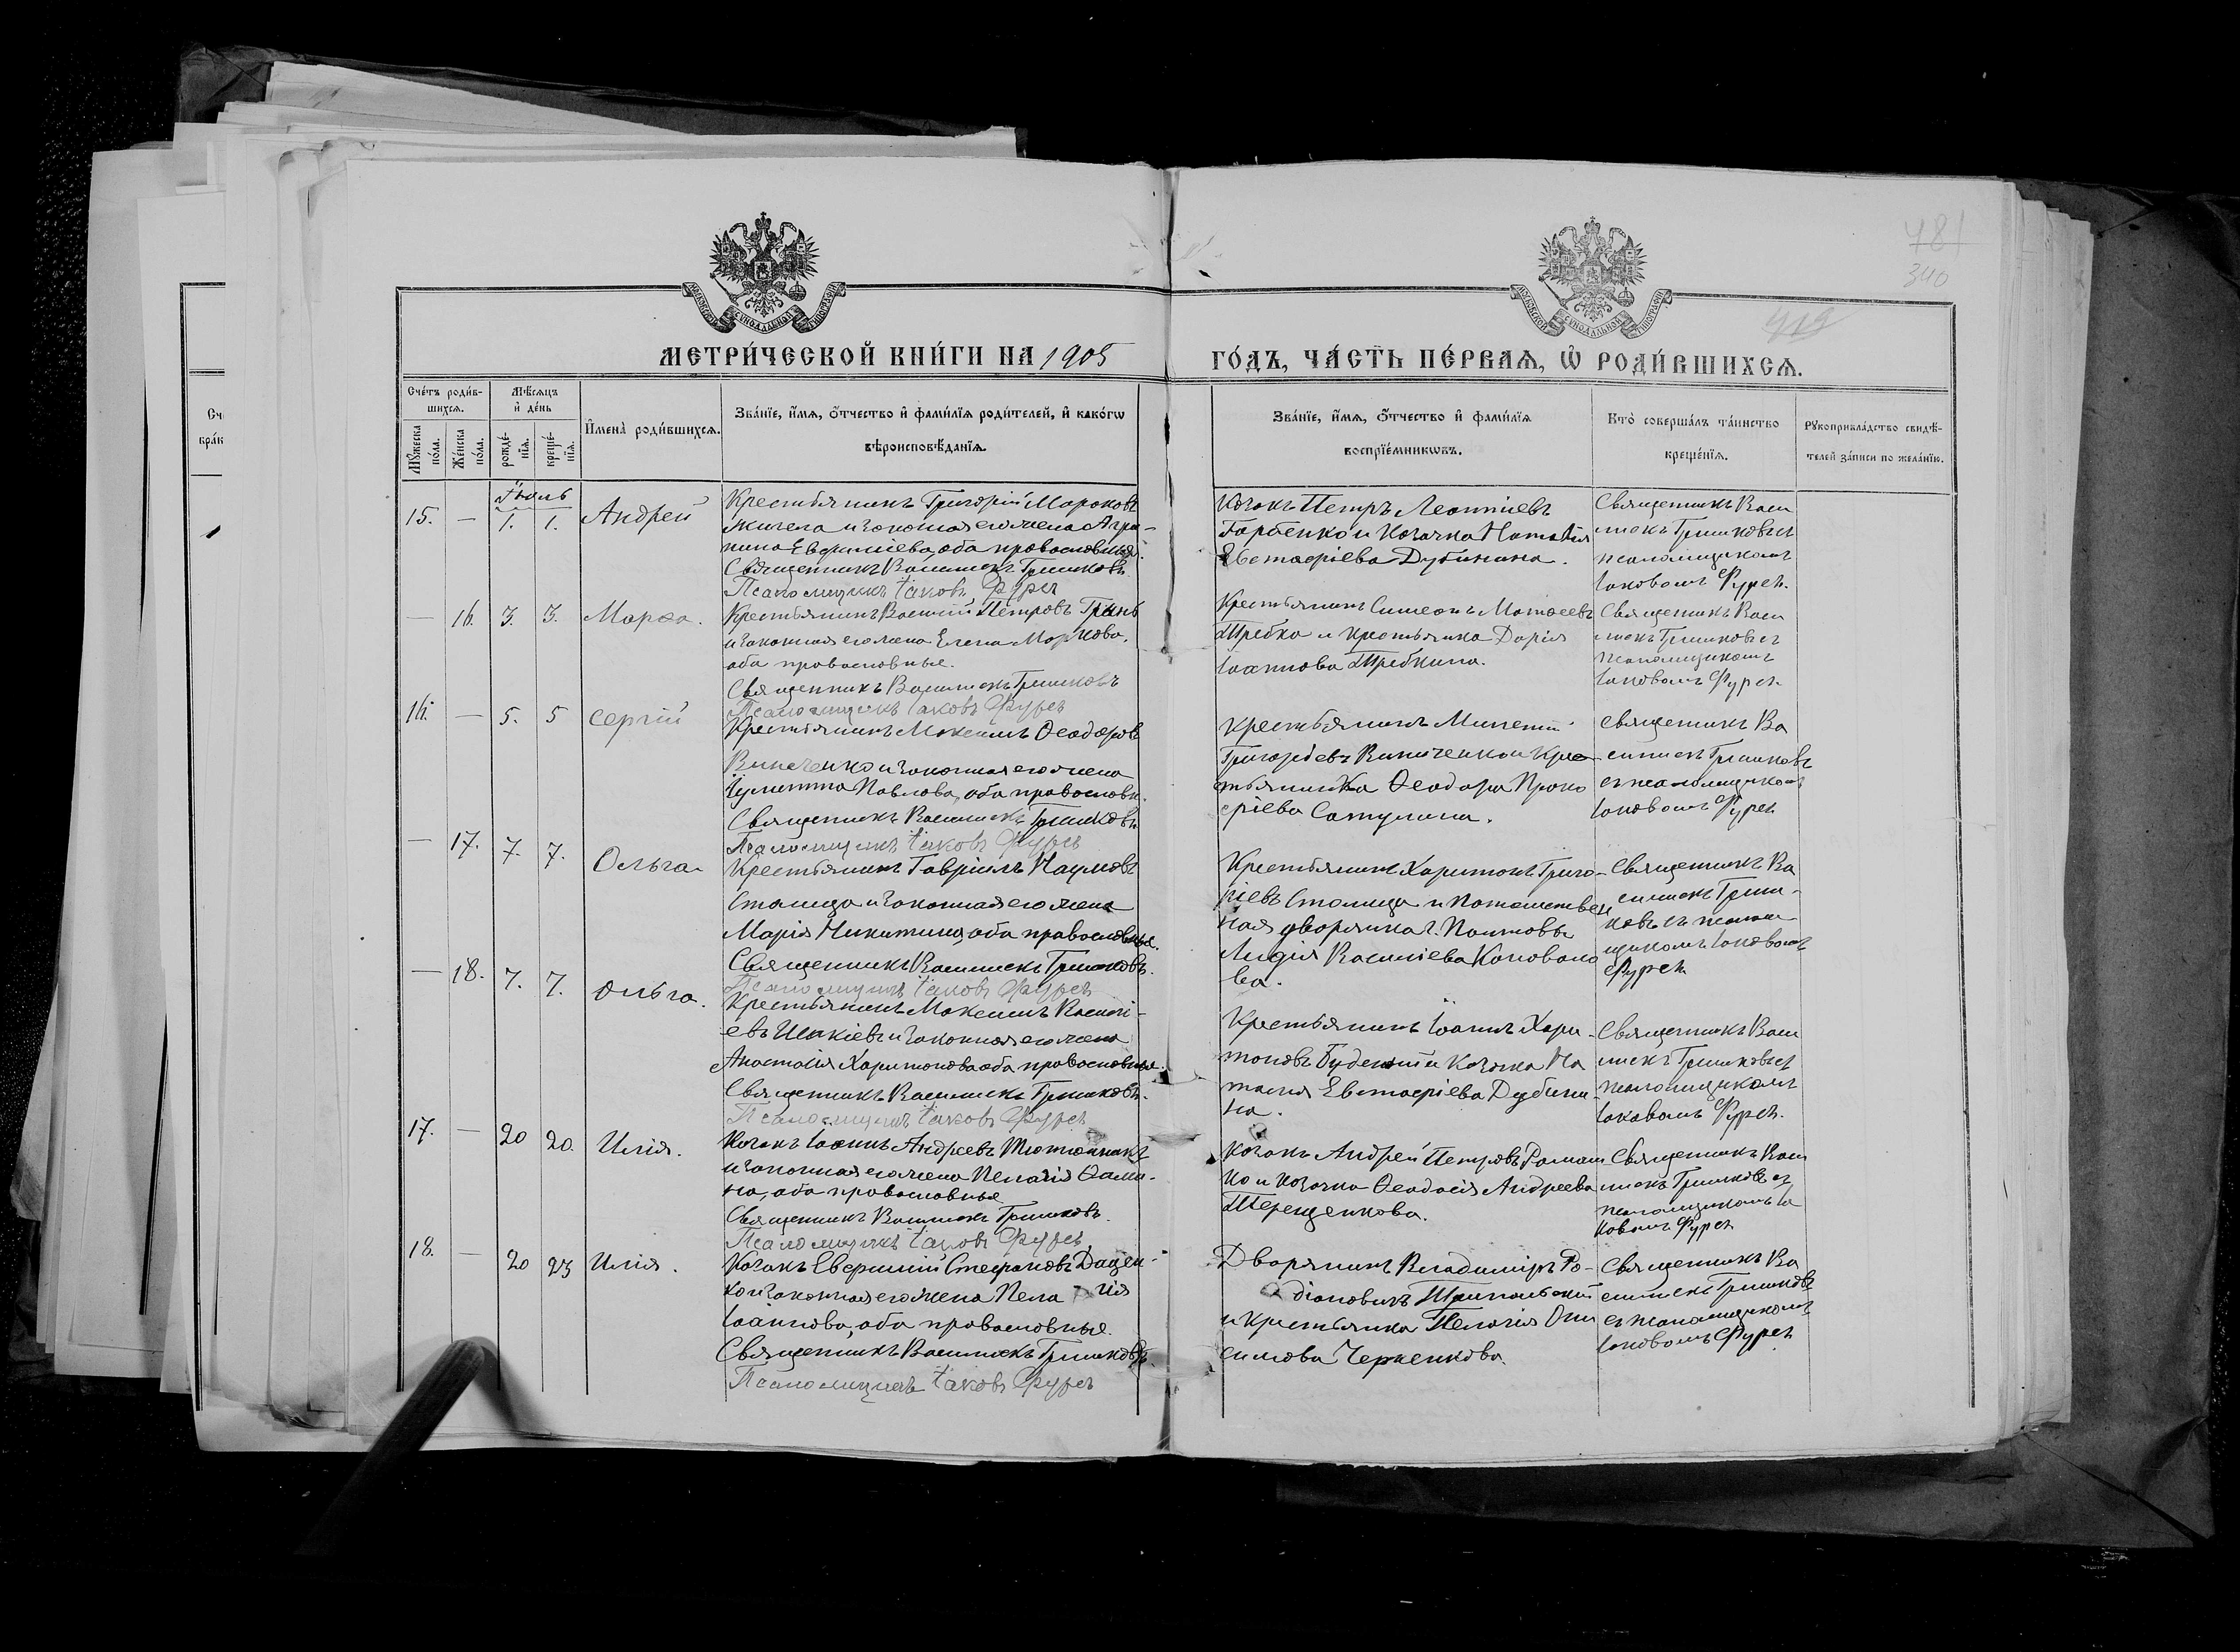 481
340
419
МОСКОВСКОЙ СѴНОДАЛЬНОЙ ТИПОГРАФІИ
МОСКОВСКОЙ СѴНОДАЛЬНОЙ ТИПОГРАФІИ
МЕТРИ́ЧЕСКОЙ КНИ́ГИ НА 1905
ГО́ДЪ, ЧА́СТЬ ПЕ́РВАѦ, Ѡ҆ РОДИ́ВШИХСѦ.
Сче́тъ роди́в-
шихсѧ.
Мѣ́сѧцъ
и҆ де́нь
Мꙋ́жеска
по́ла.
Же́нска
по́ла.
рожде́-
нїѧ.
креще́-
нїѧ.
И҆мена̀ роди́вшихсѧ.
Зва́нїе, и҆́мѧ, ѻ҆́тчество и҆ фами́лїѧ роди́телей, и҆ како́гѡ
вѣроисповѣ́данїѧ.
Зва́нїе, и҆́мѧ, ѻ҆́тчество и҆ фами́лїѧ
воспрїе́мникѡвъ.
Кто̀ соверша́лъ та́инство
креще́нїѧ.
Рꙋкоприкла́дство свидѣ́-
телей за́писи по жела́нїю.
Іюль
15. — 1. 1. Андрей
Крестьянинъ Григорій Марковъ
и законная его жена Агри-
пина Евфиміева, оба православныя.
Священникъ Василискъ Гришковъ
Псаломщикъ Іаковъ Фурса
Козакъ Петръ Леонтіевъ
Горбенко и козачка Наталія
Евстафіева Дубинина.
Священникъ Васи
лискъ Гришковъ съ
псаломщикомъ
Іаковомъ Фурсой.
— 16. 3. 3. Марѳа.
Крестьянинъ Василій Петровъ Гринь
и законная его жена Елена Маркова,
оба православные.
Священникъ Василискъ Гришковъ
Псаломщикъ Іаковъ Фурса
Крестьянинъ Симеонъ Матѳеевъ
Шребка и крестьянка Дарія
Іоаннова Шребкина.
Священникъ Васи
лискъ Гришковъ съ
псаломщикомъ
Іаковомъ Фурсой.
16. — 5. 5 Сергій
Крестьянинъ Максимъ Ѳеодоровъ
Виниченко и законная его жена
Іуліитта Павлова, оба православн.
Священникъ Василискъ Гришковъ
Псаломщикъ Іаковъ Фурса
Крестьянинъ
Григорьевъ Виниченко и Кре
стьянка Ѳеодора Проко
фіева
Священникъ Ва
силискъ Гришковъ
съ псаломщикомъ
Іаковомъ Фурсой
— 17. 7. 7. Ольга
Крестьянинъ Гавріилъ Наумовъ
Столица и законная его жена
Марія Никитина, оба православные.
Священникъ Василискъ Гришковъ.
Псаломщикъ Іаковъ Фурса
Крестьянинъ Харитонъ Григо-
ріевъ Столица и потомствен
ная дворянка г. Полтавы
Лидія Василіева Коновало
ва.
Священникъ Ва
силискъ Гриш-
ковъ съ псалом
щикомъ Іаковомъ
Фурсой
— 18. 7. 7. Ольга.
Крестьянинъ Максимъ Василі-
евъ и законная его жена
Анастасія Харитонова оба православные.
Священникъ Василискъ Гришковъ.
Псаломщикъ Іаковъ Фурса
Крестьянинъ Іоаннъ Хари-
тоновъ Буденный и козачка На
талія Евстафіева Дубини-
на.
Священникъ Васи
лискъ Гришковъ съ
псаломщикомъ
Іаковомъ Фурсой.
17. — 20 20. Илія.
Козакъ Іоаннъ Андреевъ Тютюнникъ
и законная его жена Пелагія Ѳоми-
на, оба православные
Священникъ Василискъ Гришковъ.
Псаломщикъ Іаковъ Фурса
Козакъ Андрей Петровъ Романен
ко и козачка Ѳеодосія Андреева
Терещенкова.
Священникъ Васи
лискъ Гришковъ съ
псаломщикомъ Іа
ковомъ Фурсой
18. — 20 23 Илія.
Козакъ Евфимій Стефановъ Дацен-
ко и законная его жена Пела гія
Іоаннова, оба православные.
Священникъ Василискъ Гришковъ.
Псаломщикъ Іаковъ Фурса
Дворянинъ Владиміръ Ро-
діоновичъ
и крестьянка Пелагія Они
симова Черненкова.
Священникъ Ва
силискъ Гришковъ
съ псаломщикомъ
Іаковомъ Фурсой